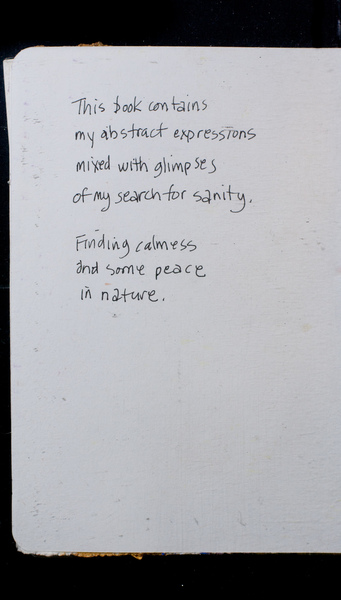 This book contains
my abstract expressions
mixed with glimpses
of my search for sanity.
Finding calmess
and some peace
in nature.